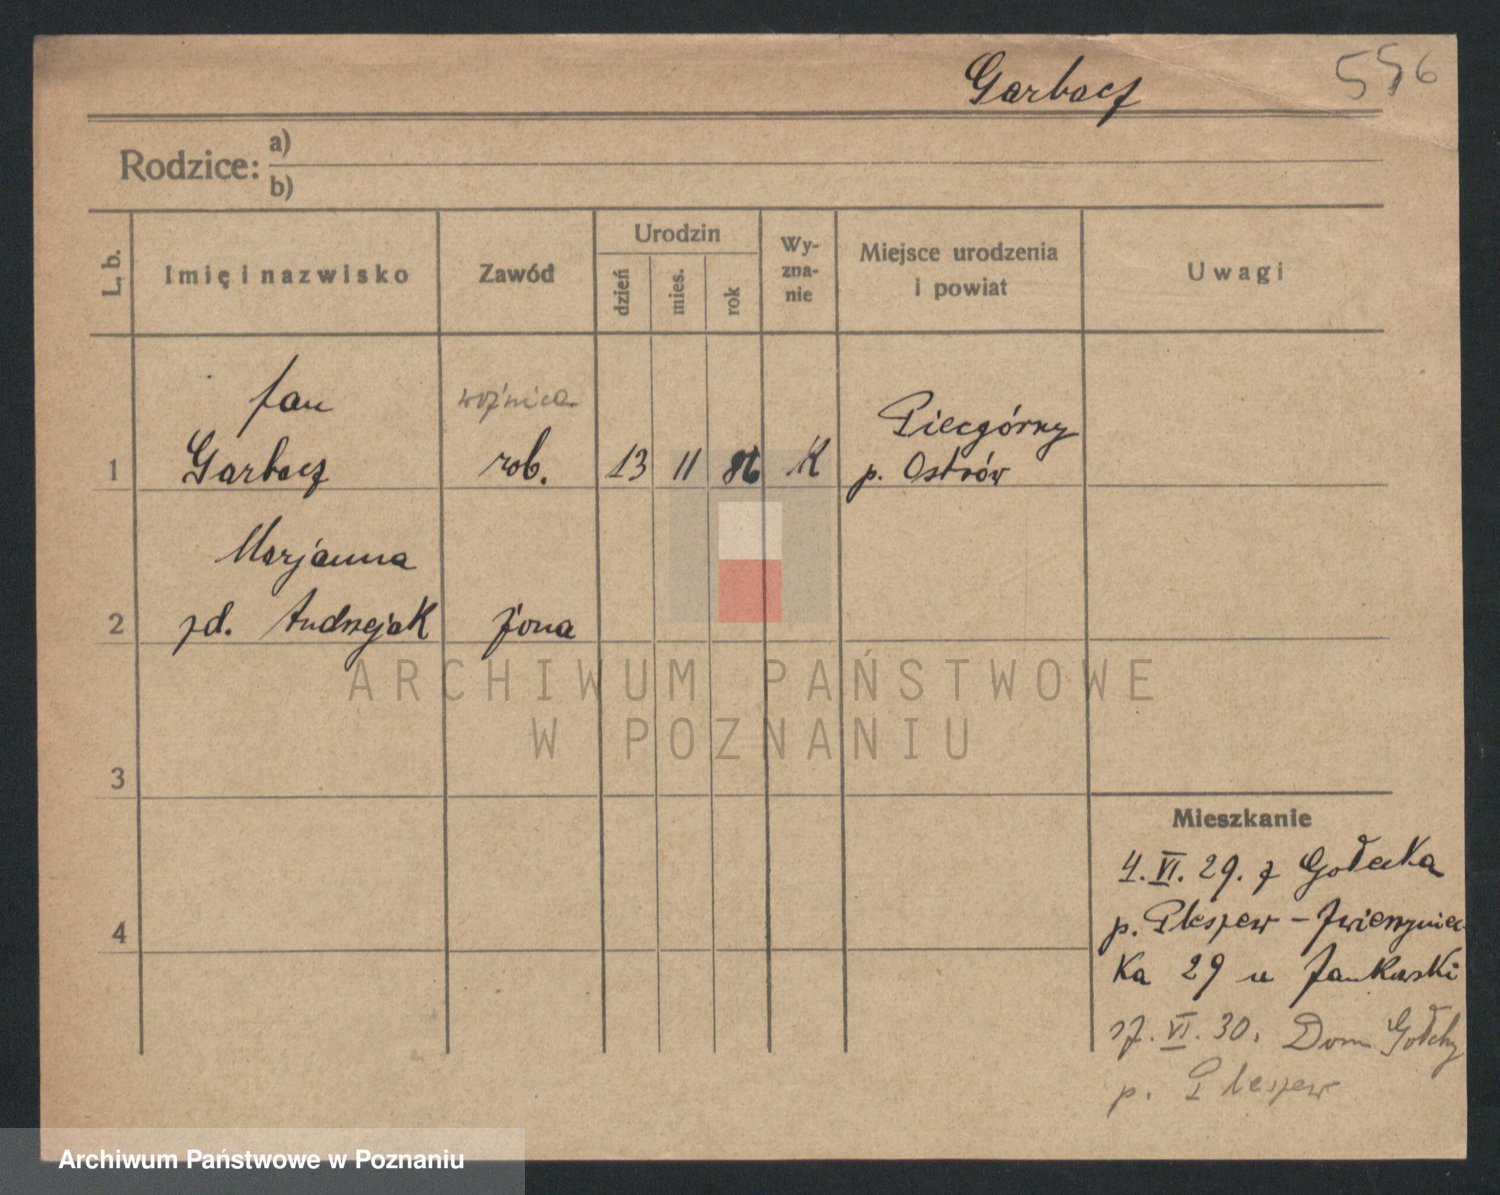 Garbacz 556
Rodzice: a)
b)
L. b. Imię i nazwisko Zawód Urodzin dzień mies. rok Wy-zna-nie Miejsce urodzenia i powiat Uwagi
Jan woźnica Piecgórny
1 Garbacz rob. 13 11 86 K p. Ostrów
Marjanna
2 zd. Andrzejak żona
ARCHIWUM PAŃSTWOWE
W POZNANIU
3
Mieszkanie
4. VI. 29. z
p. Pleszew – Zwierzyniec-
4
ka 29 u Jankowski
VI. 30. Dom.
p. Pleszew
Archiwum Państwowe w Poznaniu